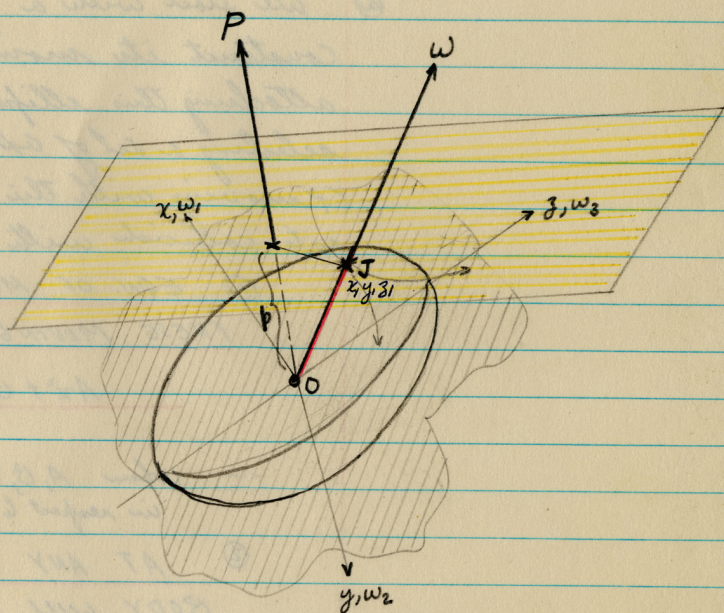 P
ω
x, ω₁
z, ω₃
J
x₁y₁z₁
p
O
y, ω₂